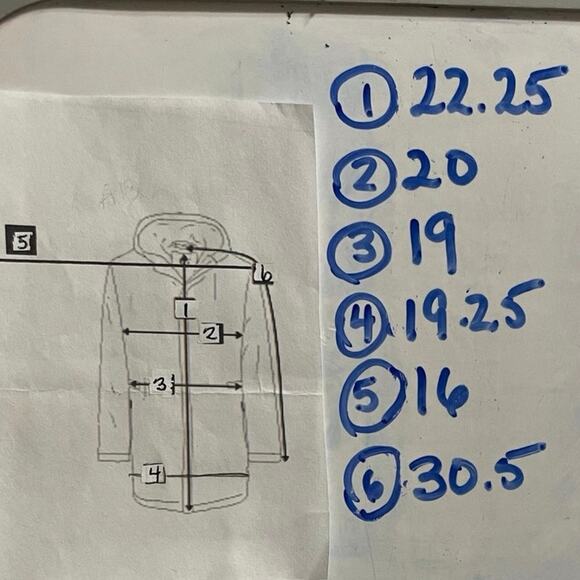 ① 22.25
② 20
③ 19
④ 19.25
⑤ 16
⑥ 30.5
5
6
1
2
3
4